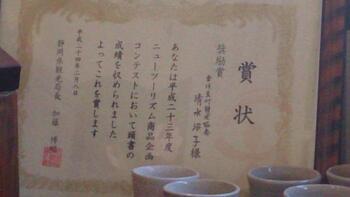 賞状
奨励賞
清水
子様
あなたは平成二十三年度
ニューツーリズム商品企画
コンテストにおいて頭書の
成績を収められました
よってこれを賞します
平成二十四年二月八日
静岡県観光局長 加藤 博